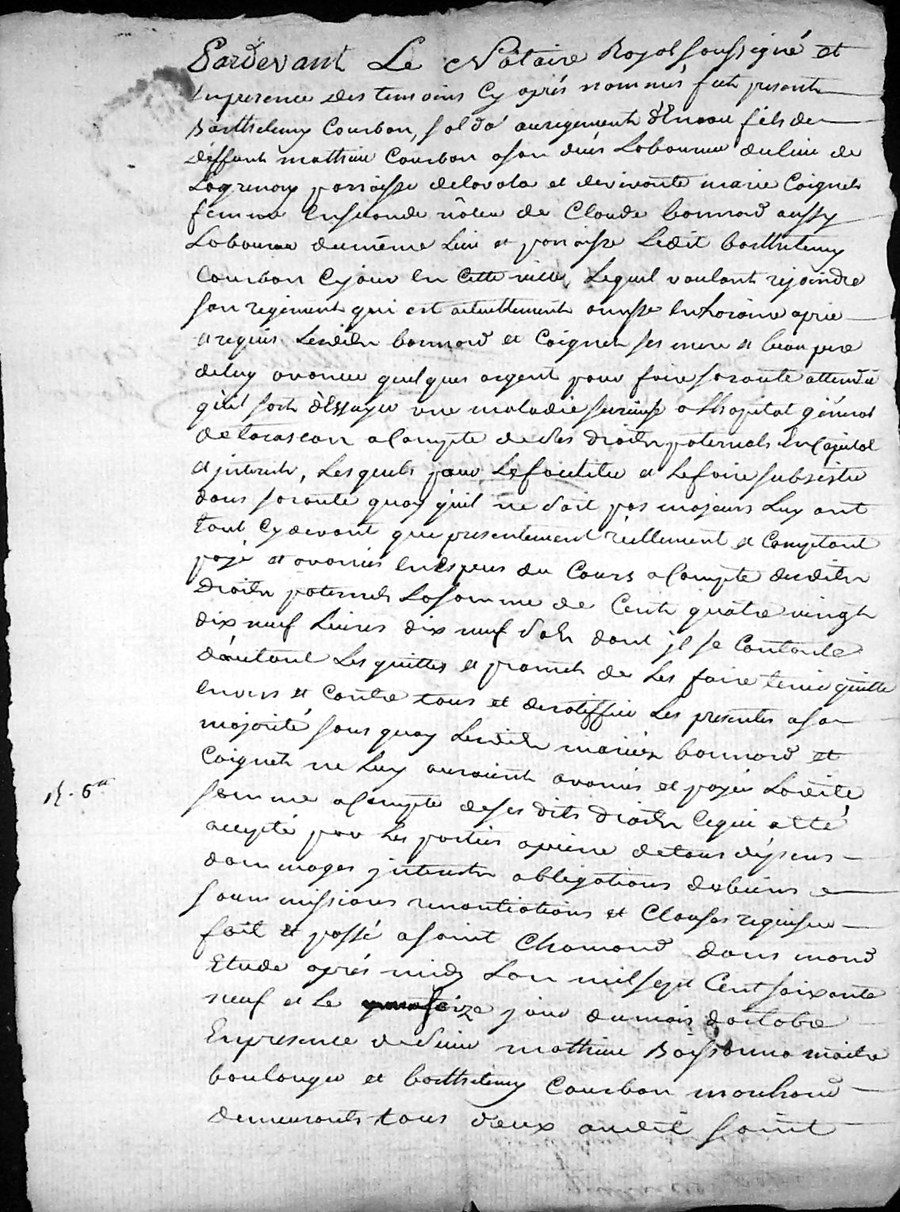 Pardevant Le Notaire Royal soussigné et
en presence des temoins Cy aprés nommés fut present
Barthelemy Courbon, soldat au regiment d'Enaou fils de
deffunt mathieu Courbon a son vivant Laboureur du lieu de
paroisse delavala et de vivante marie Coignet
femme en seconde nôces de Claude bonnard aussy
Laboureur du même Lieu et paroisse Ledit barthelemy
Courbon Ce jour en cette ville, Lequel voulant rejoindre
son regiment qui est actuellement en Loraine a prié
et requis Lesdits bonnard et Coignet ses mere et beau pere
de luy avancer quelques argent pour faire sa route attendu
qu'il sort d'Essuyer une maladie a l'hopital général
de tarascon a Compte de des droits paternels En Capital
et interets, Lesquels pour Le faciliter et Le faire subsister
dans sa route quoy qu'il ne soit pas majeurs Luy ont
tout Cy devant que presentement réellement et Comptant
payé et avancés en Especes du Cours a Compte desdits
Droits paternels La somme de Cent quatre vingt
dix neuf Livres dix neuf sols dont jl se Contente
d'autant Les quittes et promet de Les faire tenir quitte
envers et Contre tous et de ratiffier Les presentes a sa
majorité sans quoy Lesdits mariez bonnard et
Coignet ne Luy auroient avancés et payés Ladite
somme a Compte de ses dits droits Ce qui a eté
accepté par Les parties a peine de tous dépens
dommages interets obligations de biens
soummissions renontiations et Clauses requises
fait et passé a saint Chamond dans mond
Etude aprés midy L'an mil sept Cent soixante
neuf et Le seize jour du mois d'actobre
En presence de sieur mathieu Boissonna maitre
boulanger et barthelemy Courbon marchand
demeurants tous deux audit saint